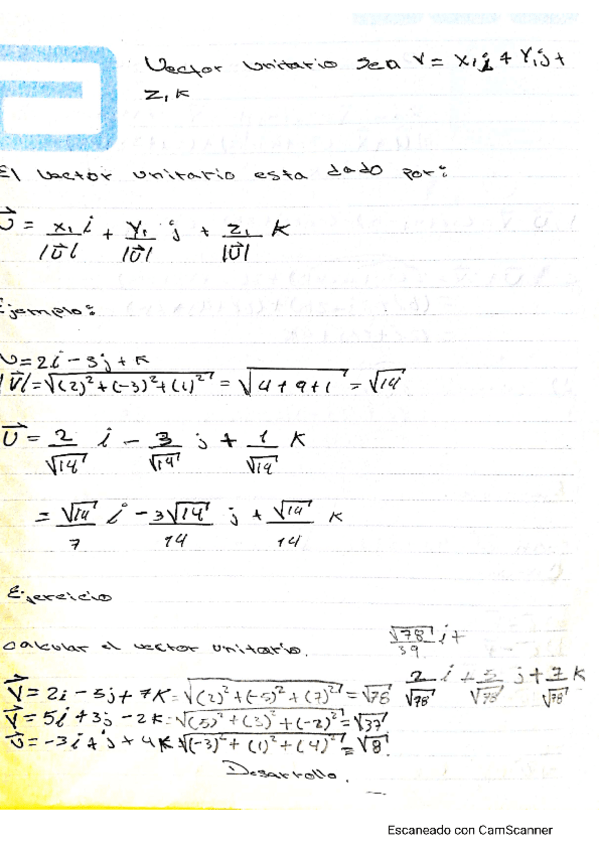 Vector unitario sea V = x₁i + Y₁j +
z₁k
El vector unitario esta dado por:
U⃗ = x₁/|U⃗| i + Y₁/|U⃗| j + z₁/|U⃗| K
Ejemplo:
U = 2i - 3j + k
|V⃗| = √(2)² + (-3)² + (1)² = √4 + 9 + 1 = √14
U⃗ = 2/√14 i - 3/√14 j + 1/√14 K
= √14/7 i - 3√14/14 j + √14/14 k
Ejercicio
calcular el vector unitario.
√78/39 i +
V⃗ = 2i - 5j + 7K = √(2)² + (-5)² + (7)² = √78
2/√78 i + 5/√78 j + 7/√78 K
V⃗ = 5i + 3j - 2K = √(5)² + (3)² + (-2)² = √37
U⃗ = -3i + j + 4K = √(-3)² + (1)² + (4)² = √8
Desarrollo.
Escaneado con CamScanner